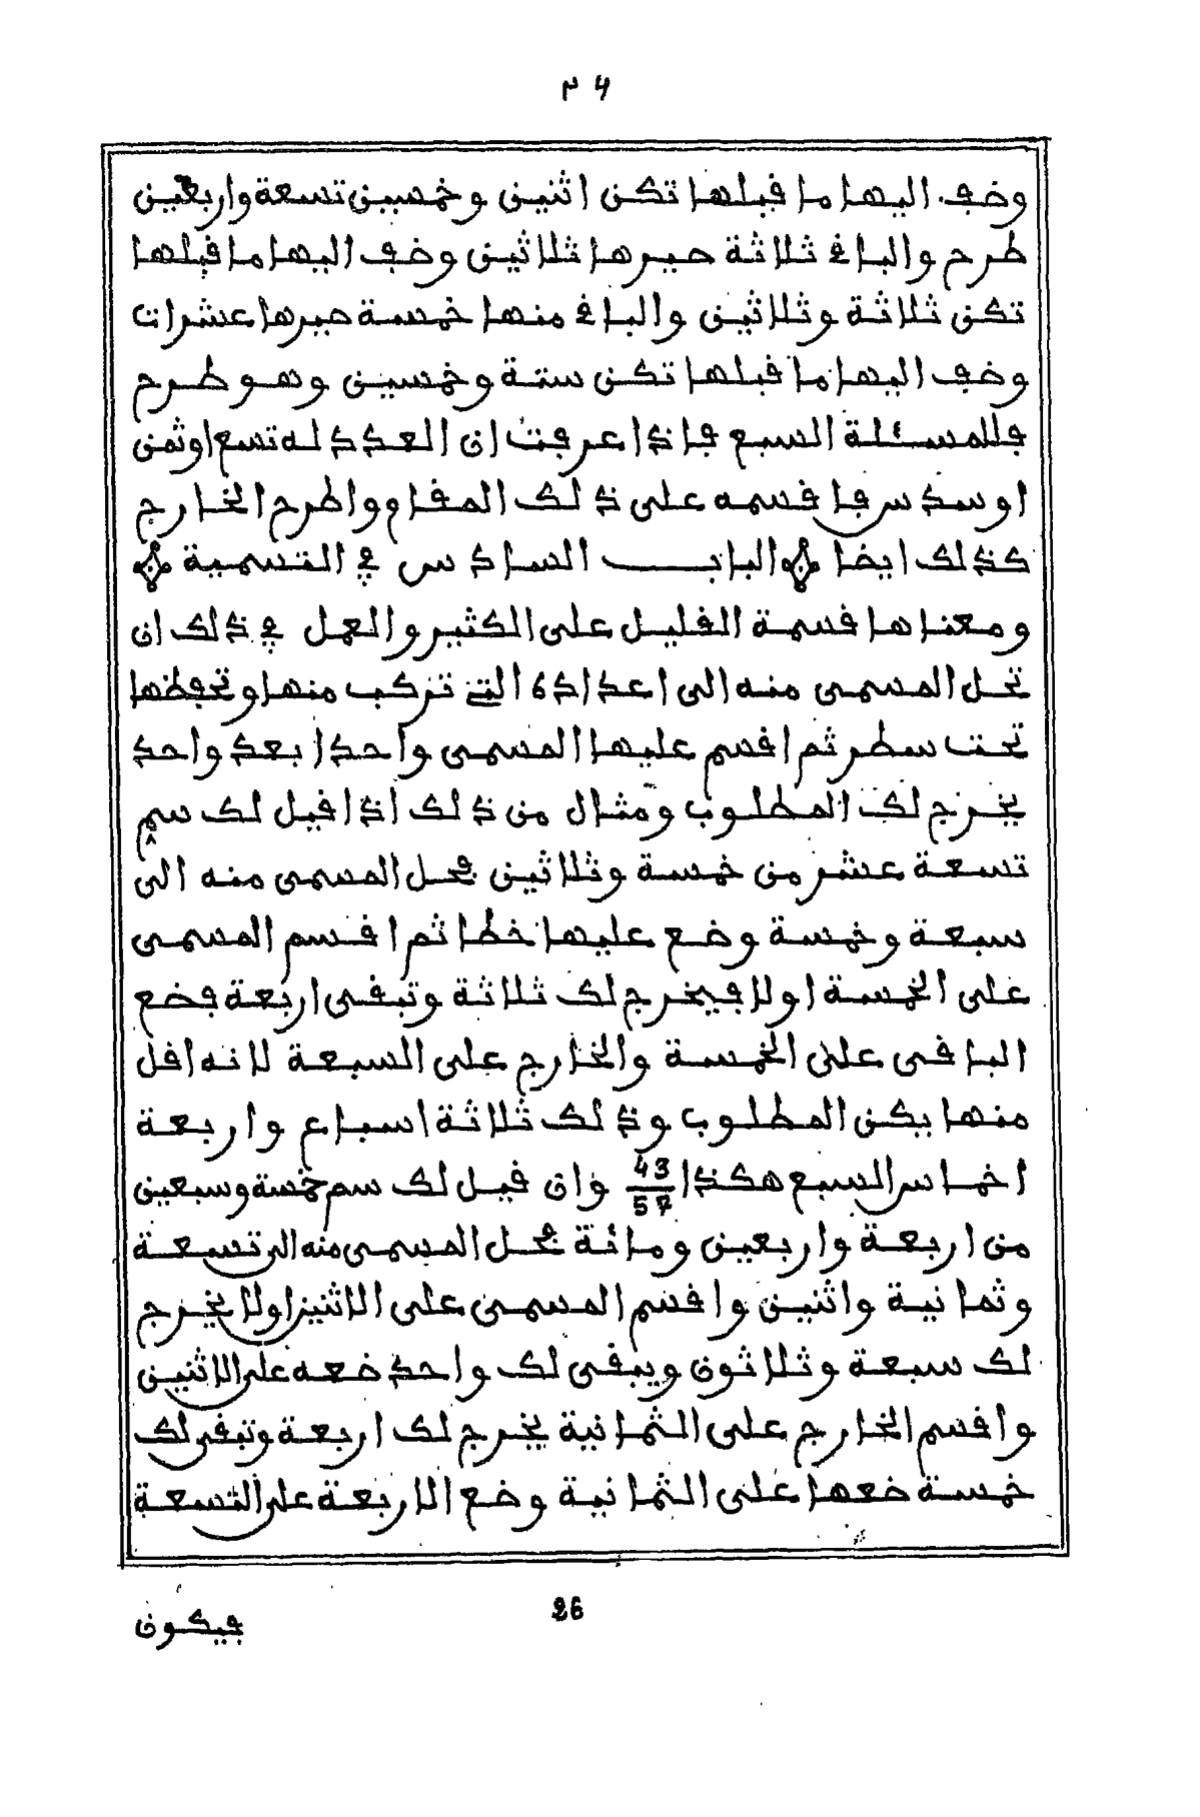 ٢٦
وضف اليها ما قبلها تكن اثنين وخمسين تسعة واربعين
طرح والباقى ثلاثة صيرها ثلاثين وضف اليها ما قبلها
تكن ثلاثة وثلاثين والباقى منها خمسة صيرها عشرات
وضف اليها ما قبلها تكن ستة وخمسين وهو طرح
فللمسئلة السبع فاذا عرفت ان العدد له تسع او ثمن
او سدس فاقسمه على ذلك المقام واطرح الخارج
كذلك ايضا والباب السادس في التسمية
ومعناها قسمة القليل على الكثير والعمل في ذلك ان
تحل المسمى منه الى اعداده التي تركب منها وتحفظها
تحت سطر ثم اقسم عليها المسمى واحدا بعد واحد
يخرج لك المطلوب ومثال من ذلك اذا قيل لك سم
تسعة عشر من خمسة وثلاثين فحل المسمى منه الى
سبعة وخمسة وضع عليها خطا ثم اقسم المسمى
على الخمسة اولا فيخرج لك ثلاثة وتبقى اربعة فضع
الباقى على الخمسة والخارج على السبعة لانه اقل
منها يكن المطلوب وذلك ثلاثة اسباع واربعة
اخماس السبع هكذا 43/57 وان قيل لك سم خمسة وسبعين
من اربعة واربعين ومائة فحل المسمى منه الى تسعة
وثمانية واثنين واقسم المسمى على الاثنين اولا يخرج
لك سبعة وثلاثون ويبقى لك واحد ضعه على الاثنين
واقسم الخارج على الثمانية يخرج لك اربعة وتبقى لك
خمسة ضعها على الثمانية وضع الاربعة على التسعة
26
فيكون